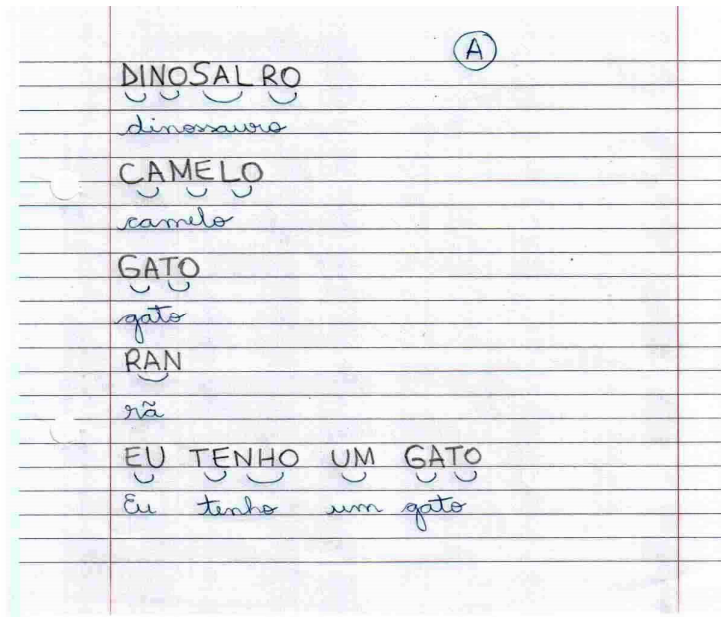 A
DINOSALRO
dinossauro
CAMELO
camelo
GATO
gato
RAN
rã
EU TENHO UM GATO
Eu tenho um gato